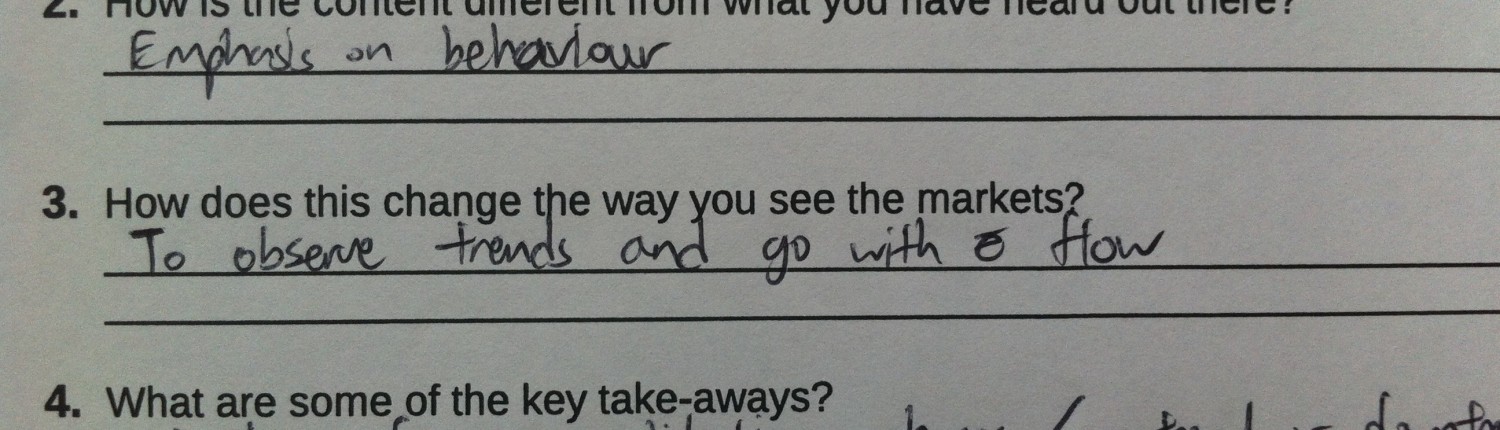 2. How is the content different from what you have heard out there?
Emphasis on behaviour
3. How does this change the way you see the markets?
To observe trends and go with flow
4. What are some of the key take-aways?